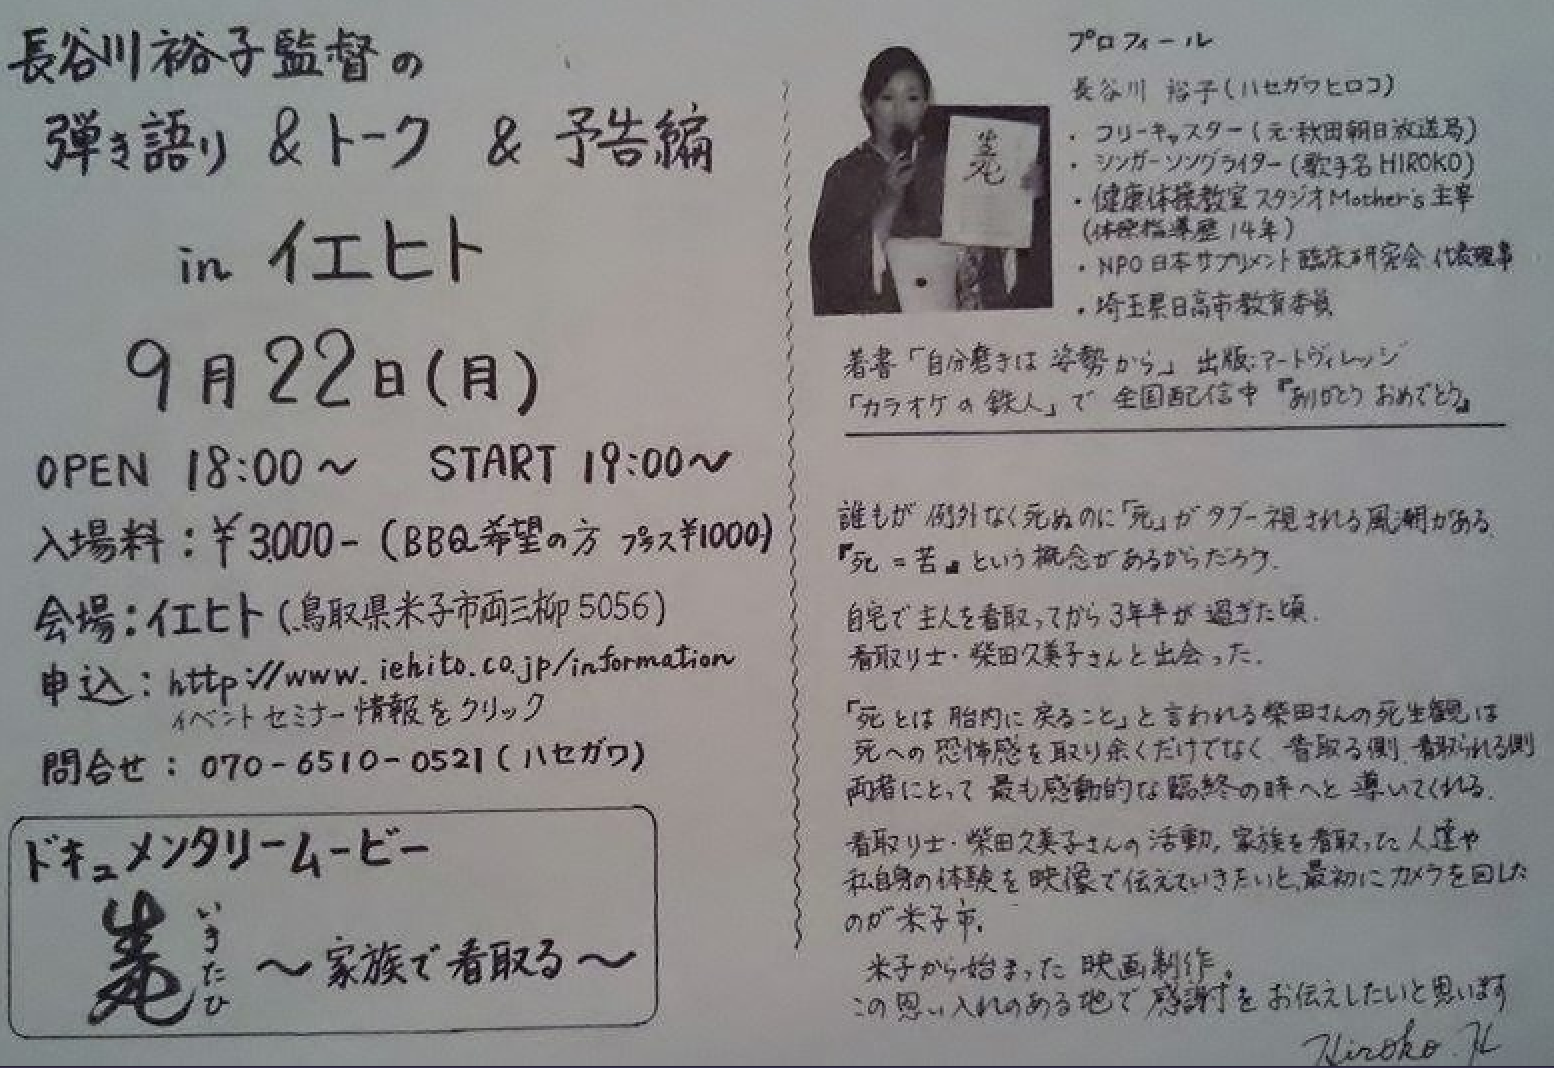 長谷川裕子監督の
弾き語り & トーク & 予告編
in イエヒト
9月22日(月)
OPEN 18:00～ START 19:00～
入場料:¥3,000-(BBQ希望の方 プラス¥1000)
会場:イエヒト(鳥取県米子市両三柳5056)
申込:http://www.iehito.co.jp/information
イベントセミナー情報をクリック
問合せ:070-6510-0521(ハセガワ)
ドキュメンタリームービー
いきたひ
～家族で看取る～
プロフィール
長谷川 裕子(ハセガワヒロコ)
・フリーキャスター(元・秋田朝日放送局)
・シンガーソングライター(歌手名HIROKO)
・健康体操教室スタジオMother's主宰
(体操指導歴14年)
・NPO日本サプリメント臨床研究会 代表理事
・埼玉県日高市教育委員
著書「自分磨きは 姿勢から」 出版:アートヴィレッジ
「カラオケの鉄人」で 全国配信中『ありがとう おめでとう』
誰もが 例外なく死ぬのに「死」がタブー視される風潮がある。
『死=苦』という概念があるからだろう。
自宅で主人を看取ってから3年半が過ぎた頃、
看取り士・柴田久美子さんと出会った。
「死とは 胎内に戻ること」と言われる柴田さんの死生観は
死への恐怖感を取り除くだけでなく、看取る側、看取られる側
両者にとって 最も感動的な臨終の時へと 導いてくれる。
看取り士・柴田久美子さんの活動、家族を看取った人達や
私自身の体験を 映像で伝えていきたいと、最初にカメラを回した
のが米子市。
米子から始まった 映画制作。
この思い入れのある地で 感謝を お伝えしたいと思います
Hiroko.H